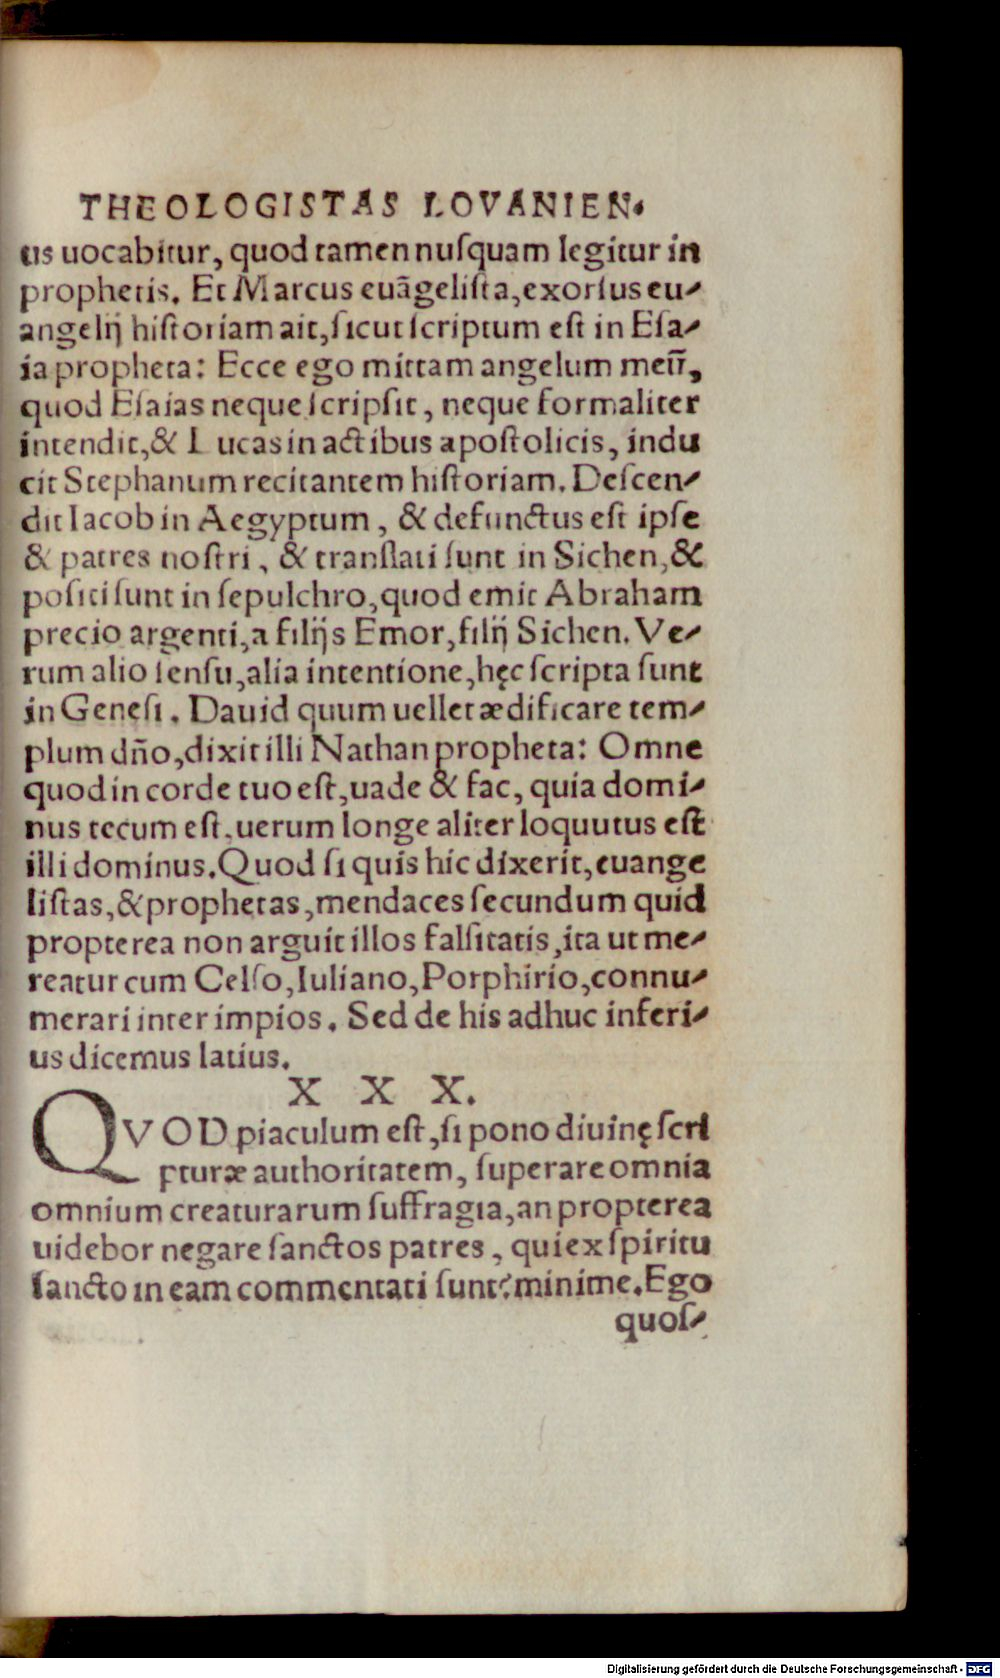 THEOLOGISTAS LOVANIEN.
us uocabitur, quod tamen nuſquam legitur in
prophetis. Et Marcus euãgeliſta, exorſus eu⸗
angelij hiſtoriam ait, ſicut ſcriptum eſt in Eſa⸗
ia propheta: Ecce ego mittam angelum meũ,
quod Eſaias neque ſcripſit, neque formaliter
intendit, & Lucas in actibus apoſtolicis, indu
cit Stephanum recitantem hiſtoriam. Deſcen⸗
dit Iacob in Aegyptum, & defunctus eſt ipſe
& patres noſtri, & tranſlati ſunt in Sichen, &
poſiti ſunt in ſepulchro, quod emit Abraham
precio argenti, a filijs Emor, filij Sichen. Ve⸗
rum alio ſenſu, alia intentione, hęc ſcripta ſunt
in Geneſi. Dauid quum uellet ædificare tem⸗
plum dño, dixit illi Nathan propheta: Omne
quod in corde tuo eſt, uade & fac, quia domi⸗
nus tecum eſt, uerum longe aliter loquutus eſt
illi dominus. Quod ſi quis hic dixerit, euange
liſtas, & prophetas, mendaces ſecundum quid
propterea non arguit illos falſitatis, ita ut me⸗
reatur cum Celſo, Iuliano, Porphirio, connu⸗
merari inter impios. Sed de his adhuc inferi⸗
us dicemus latius.
X X X.
QVOD piaculum eſt, ſi pono diuinę ſcri
pturæ authoritatem, ſuperare omnia
omnium creaturarum ſuffragia, an propterea
uidebor negare ſanctos patres, qui ex ſpiritu
ſancto in eam commentati ſunt? minime. Ego
quoſ⸗
Digitalisierung gefördert durch die Deutsche Forschungsgemeinschaft - DFG